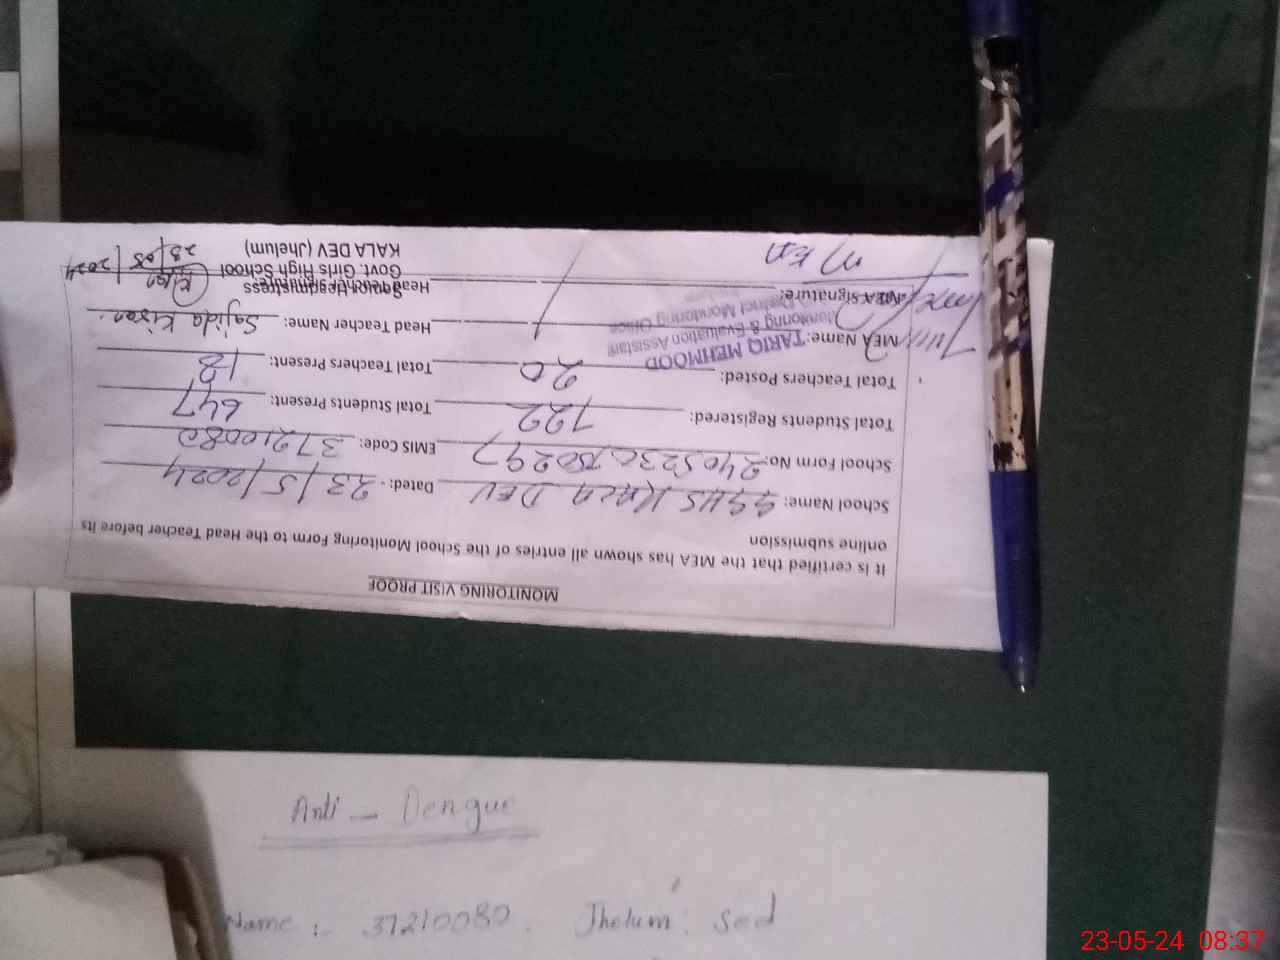 MONITORING VISIT PROOF
It is certified that the MEA has shown all entries of the School Monitoring Form to the Head Teacher before its
online submission
School Name: GGHS KALA DEV Dated: 23/5/2024
School Form No: EMIS Code: 37210080
Total Students Registered: 722 Total Students Present: 647
Total Teachers Posted: 20 Total Teachers Present: 18
MEA Name: Head Teacher Name: Sajida Kiran
TARIQ MEHMOOD
Monitoring & Evaluation Assistant
District Monitoring Office
MEA Signature: Head Teacher Signature:
MEA
Senior Headmistress
Govt. Girls High School
KALA DEV (Jhelum)
23/05/2024
Anti - Dengue
Name :- 37210080. Jhelum. Sed
23-05-24 08:37